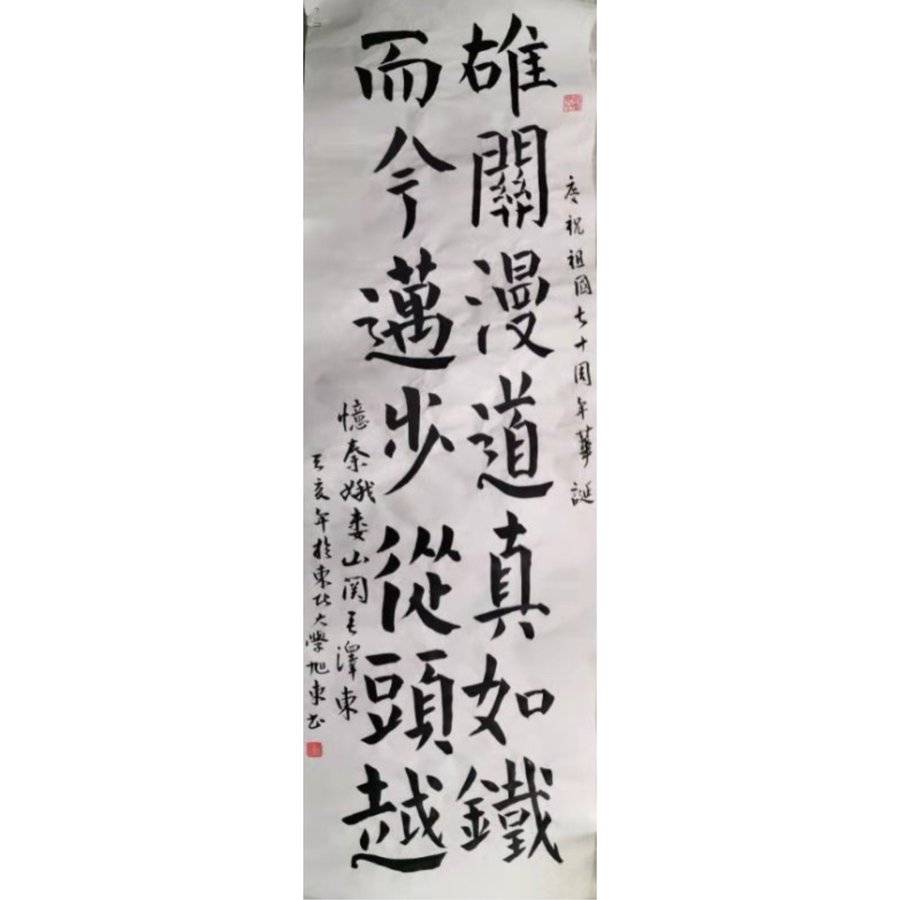 慶祝祖國七十周年華誕
雄關漫道真如鐵
而今邁步從頭越
憶秦娥婁山関毛澤東
己亥年於東北大學旭東书